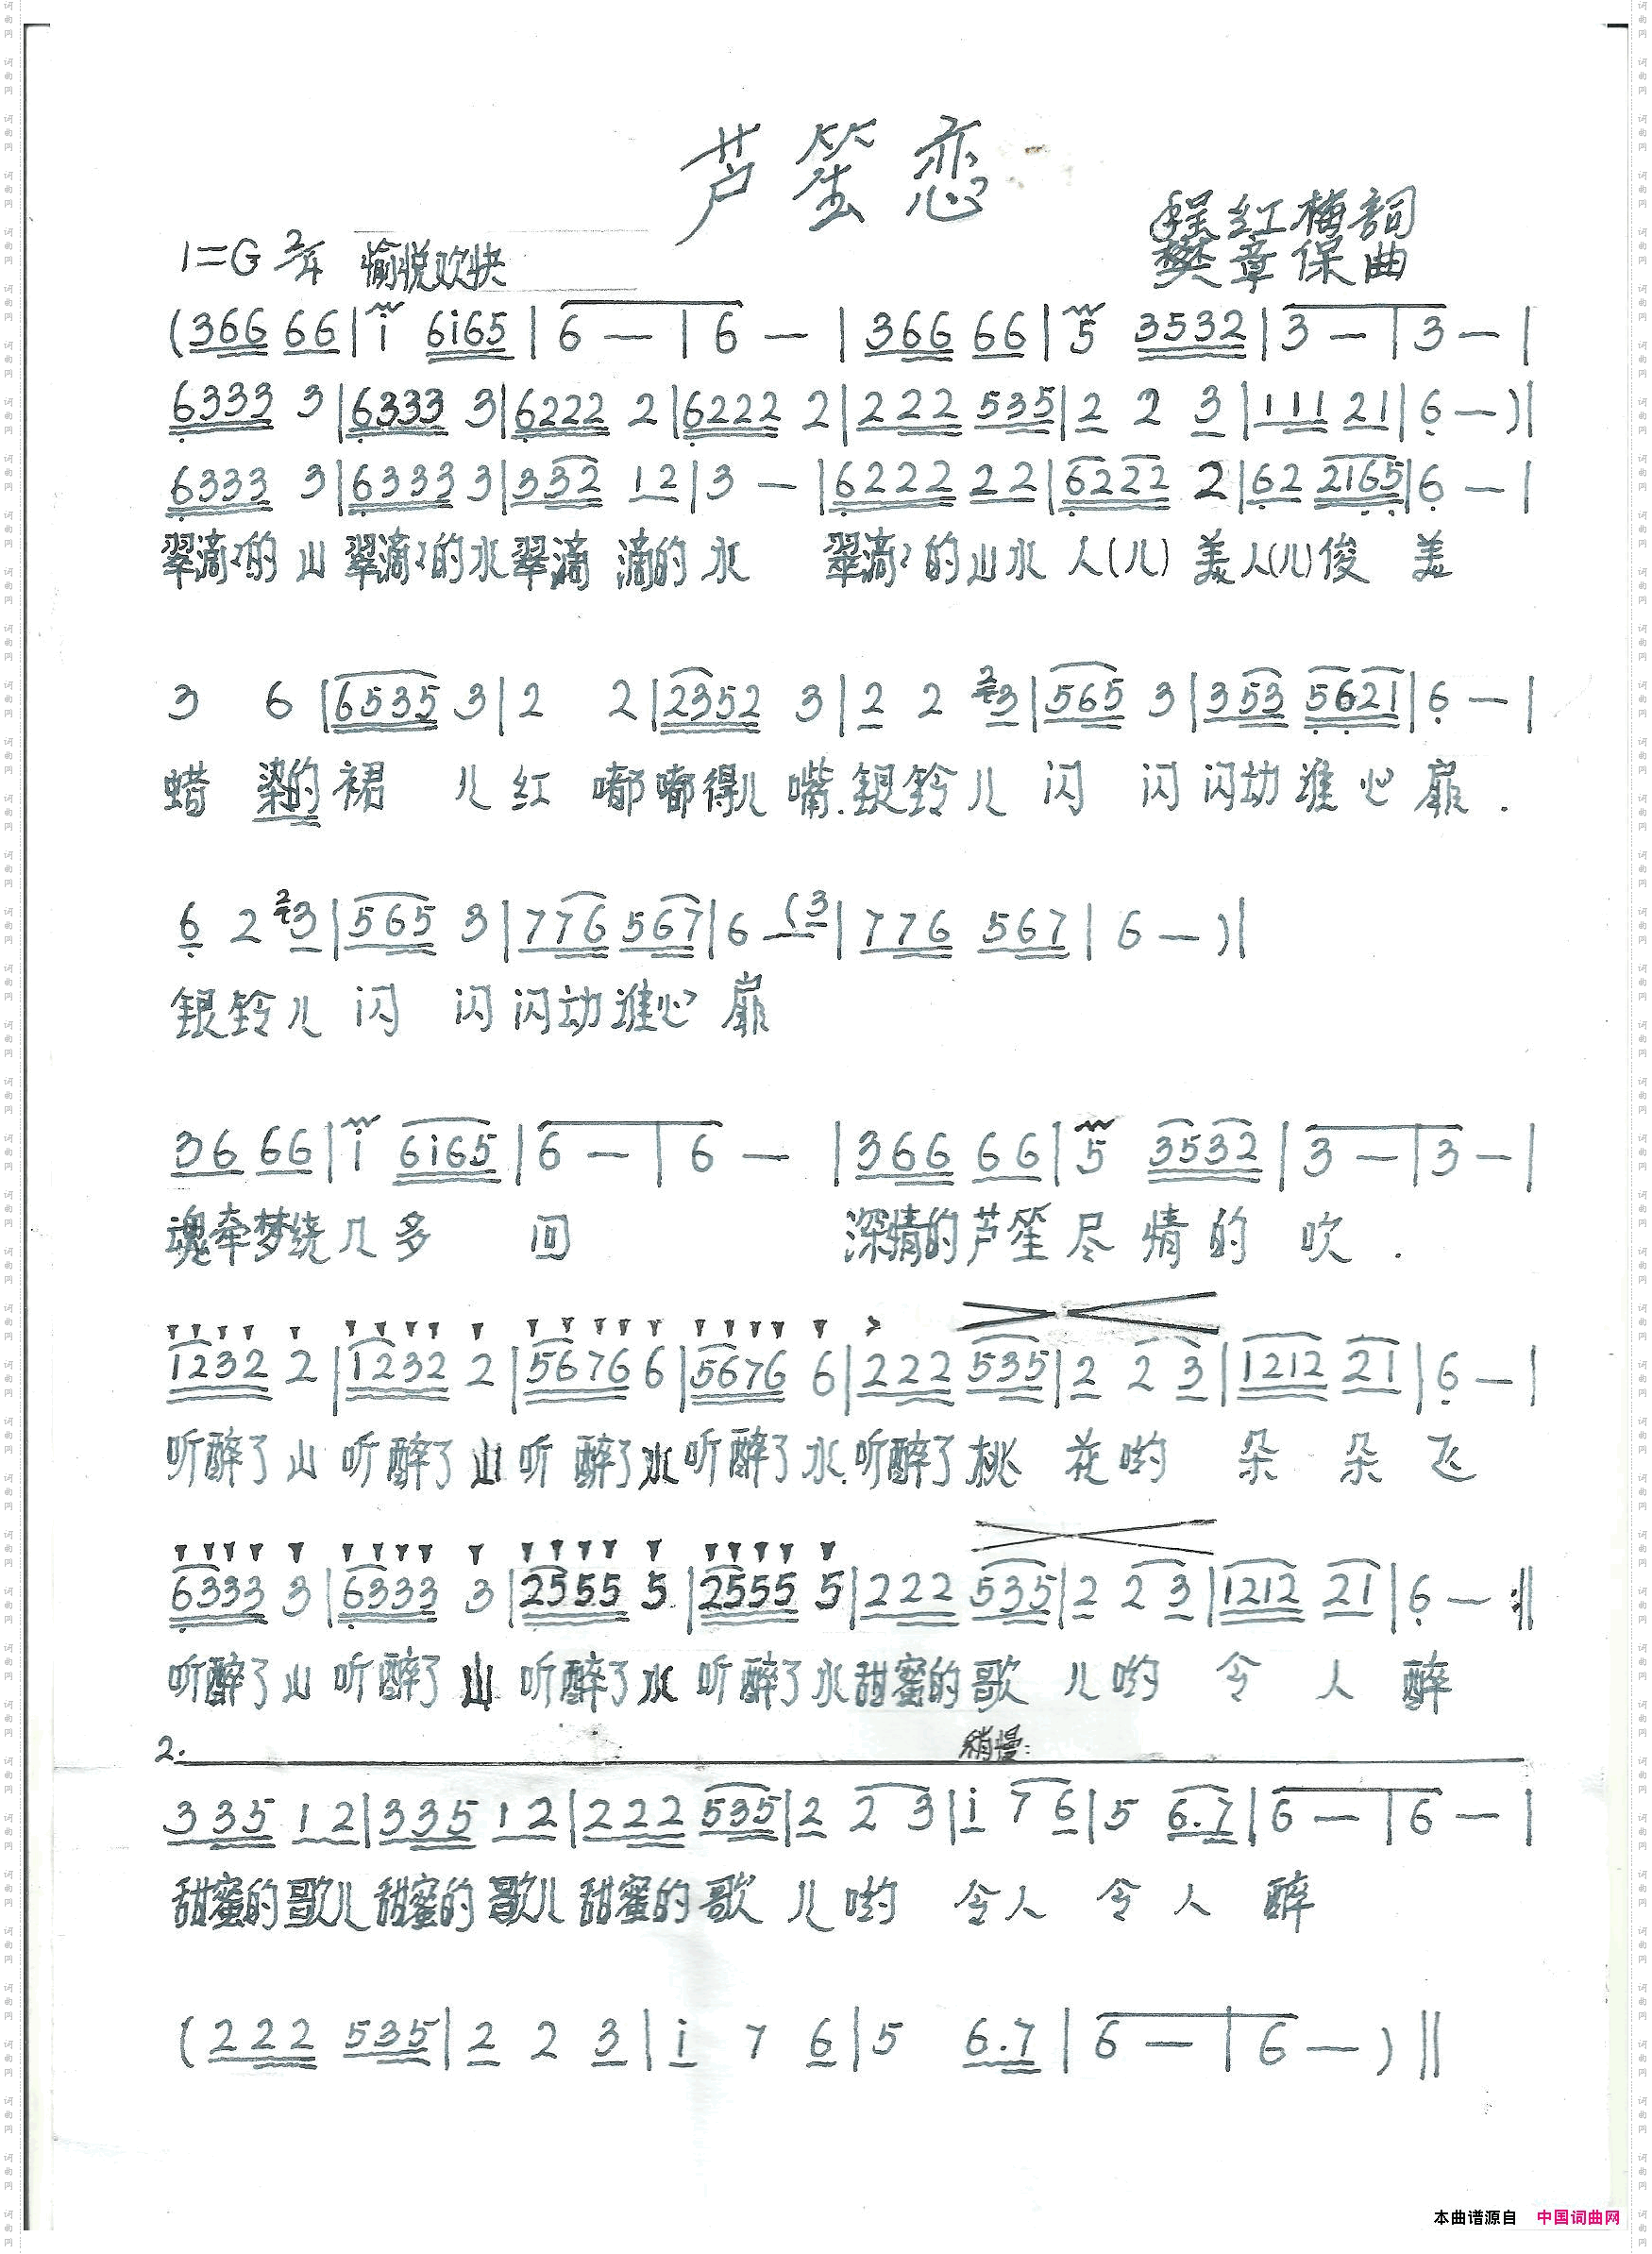 芦笙恋
程红梅詞
樊章保曲
1=G 2/4 愉悦欢快
(366 66|i 6i65|6 — |6 — |366 66|5 3532|3 — |3 — |
6333 3|6333 3|6222 2|6222 2|222 535|2 2 3|111 21|6 — )|
6333 3|6333 3|332 12|3 — |6222 22|6222 2|62 2165|6 — |
翠滴〻的 山 翠滴〻的水翠滴 滴的 水 翠滴〻的山水 人(儿) 美人(儿)俊 美
3 6|6535 3|2 2|2352 3|2 2 23|565 3|353 5621|6 — |
蜡 染的裙 儿红 嘟嘟得儿 嘴.银铃儿 闪 闪 闪动谁心 扉.
6 2 23|565 3|776 567|6 — (3|776 567|6 — )|
银铃儿 闪 闪 闪动谁心 扉
36 66|i 6i65|6 — |6 — |366 66|5 3532|3 — |3 — |
魂牵梦绕几多 回 深情的芦笙尽 情 的 吹.
1232 2|1232 2|5676 6|5676 6|222 535|2 2 3|1212 21|6 — |
听醉了 山 听醉了 山 听醉了水 听醉了 水.听醉了 桃 花哟 朵 朵 飞
6333 3|6333 3|2555 5|2555 5|222 535|2 2 3|1212 21|6 — :||
听醉了 山 听醉了 山 听醉了 水 听醉了 水 甜蜜的 歌 儿哟 令 人 醉
2. 稍慢:
335 12|335 12|222 535|2 2 3|i 7 6|5 6.7|6 — |6 — |
甜蜜的歌儿甜蜜的 歌儿 甜蜜的 歌 儿哟 令人 令 人 醉
(222 535|2 2 3|i 7 6|5 6.7|6 — |6 — )||
本曲谱源自 中国词曲网